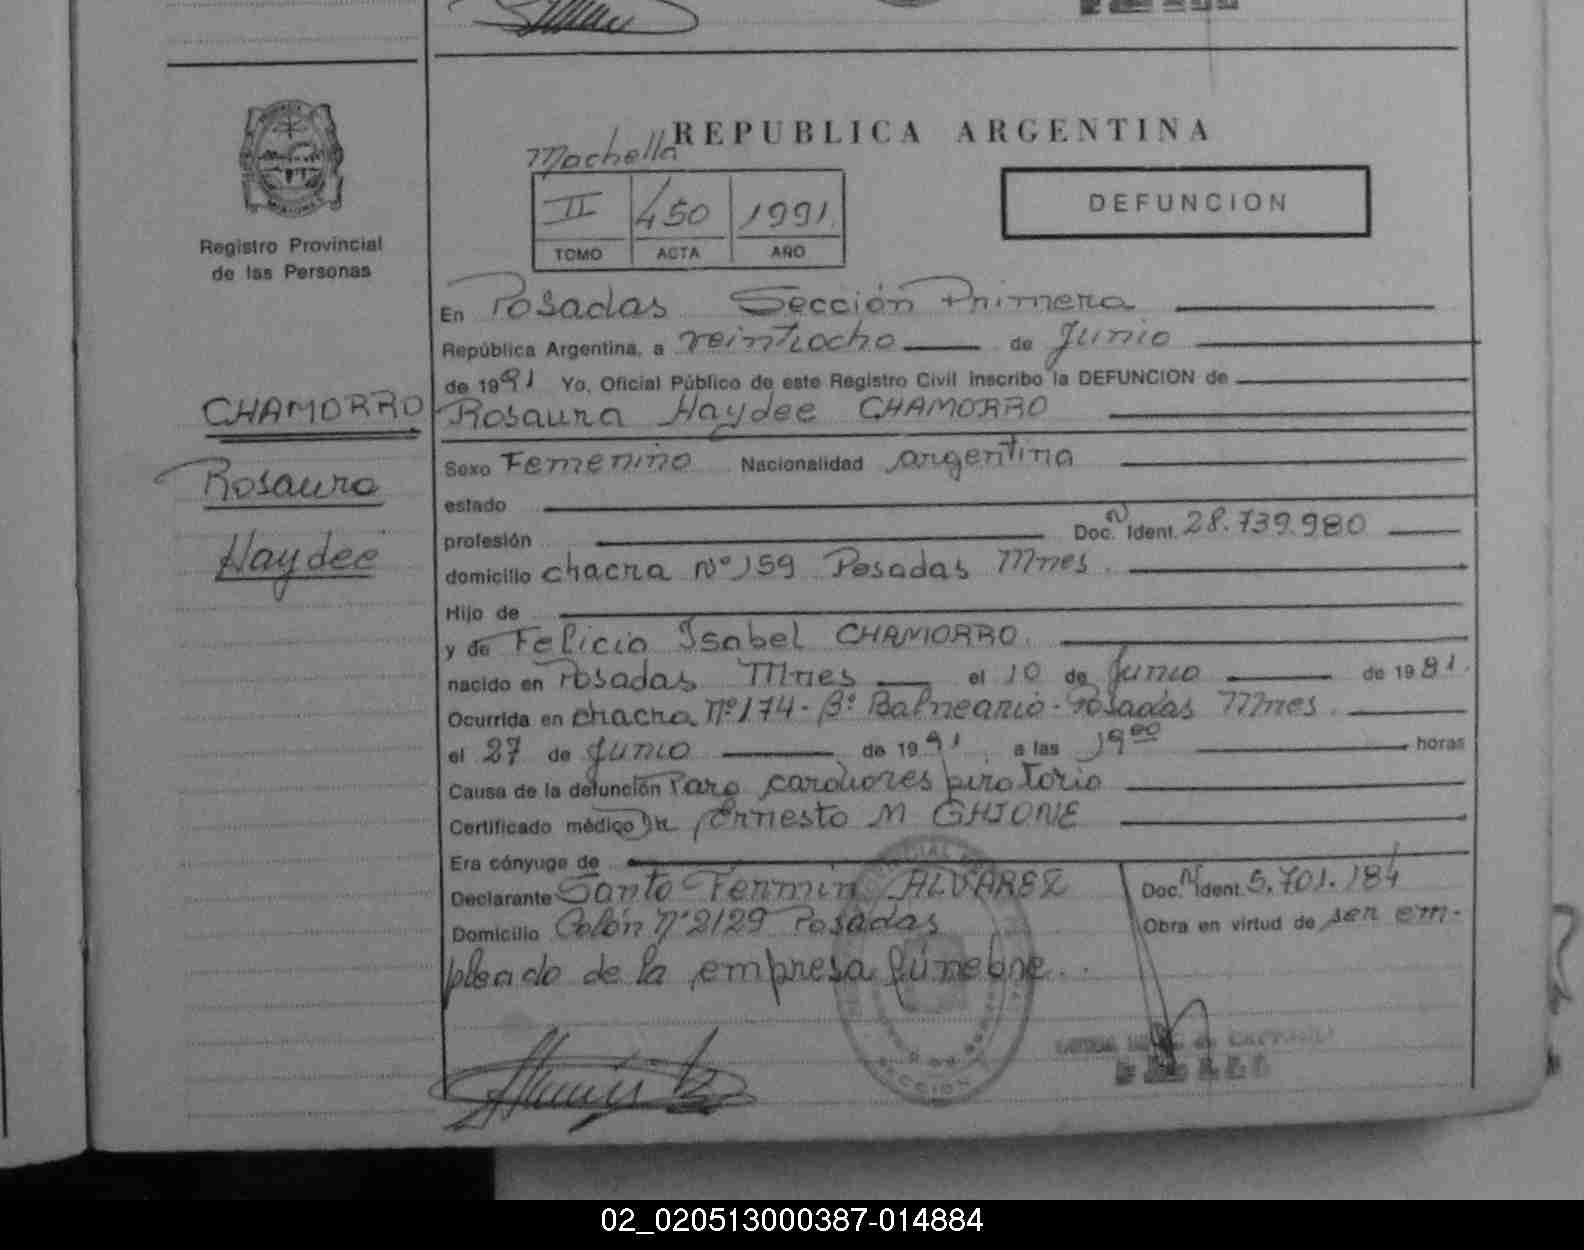 Machella
REPUBLICA ARGENTINA
II 450 1991
TOMO ACTA AÑO
DEFUNCION
Registro Provincial
de las Personas
En Posadas Sección Primera
República Argentina, a veintiocho de Junio
de 1991 Yo, Oficial Público de este Registro Civil inscribo la DEFUNCION de
CHAMORRO
Rosaura
Haydee
Rosaura Haydee CHAMORRO
Sexo Femenino Nacionalidad argentina
estado
profesión Doc. N Ident. 28.739.980
domicilio chacra Nº 159 Posadas Mnes.
Hijo de
y de Felicia Isabel CHAMORRO.
nacido en Posadas Mnes el 10 de Junio de 1981.
Ocurrida en chacra Nº 174 - Bº Balneario - Posadas Mnes.
el 27 de Junio de 1991, a las 19 00 horas
Causa de la defunción Paro cardiorespiratorio
Certificado médico Dr. Ernesto M GHIONE
Era cónyuge de
Declarante Santo Fermin ALVAREZ Doc. N Ident. 5.701.184
Domicilio Colón Nº 2129 Posadas Obra en virtud de ser em-
pleado de la empresa fúnebre.
SECCION
02_020513000387-014884